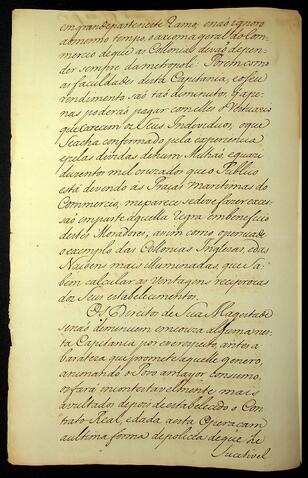 em grande parte neste Ramo; e não ignoro
ao mesmo tempo o axioma geral do Com-
mercio de que as Colonias devão depen-
der sempre da metropoli: Porém como
as faculdades desta Capitania, e o seu
rendimento são tão diminutos, q' ape-
nas poderáõ pagar com elles o Vestuario
que carecem os Seus Individuos, o que
Se acha confirmado pela experiencia
e pelas dividas de hum Milhão, e quazi
duzentos mil cruzados que o Publico
está devendo ás Praças maritimas do
Commercio, me parece se deve fazer exces-
são em parte daquella regra em beneficio
destes Moradores, assim como o persuade
o exemplo das Colonias Inglezas, e das
Naçoens mais illuminadas, que Sa-
bem calcular as Ventagens reciprocas
dos Seus estabelecimentos.
Os Direitos de Sua Magestade
se não diminuem em couza alguma nes-
ta Capitania, por este respeito, antes a
barateza que promete aquelle genero,
animando o Povo a mayor consumo,
os fará incontestavelmente mais
avultados depois de estabelecido o Con-
trato Real, e dada a esta Opera cam
a ultima forma de policia de que he
Sucetivel